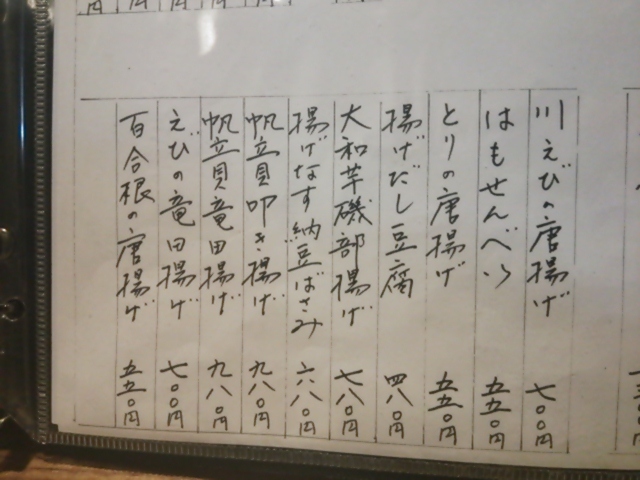 川えびの唐揚げ 七〇〇円
はもせんべい 五五〇円
とりの唐揚げ 五五〇円
揚げだし豆腐 四八〇円
大和芋磯部揚げ 七八〇円
揚げなす納豆ばさみ 六八〇円
帆立貝叩き揚げ 九八〇円
帆立貝竜田揚げ 九八〇円
えびの竜田揚げ 七〇〇円
百合根の唐揚げ 五五〇円